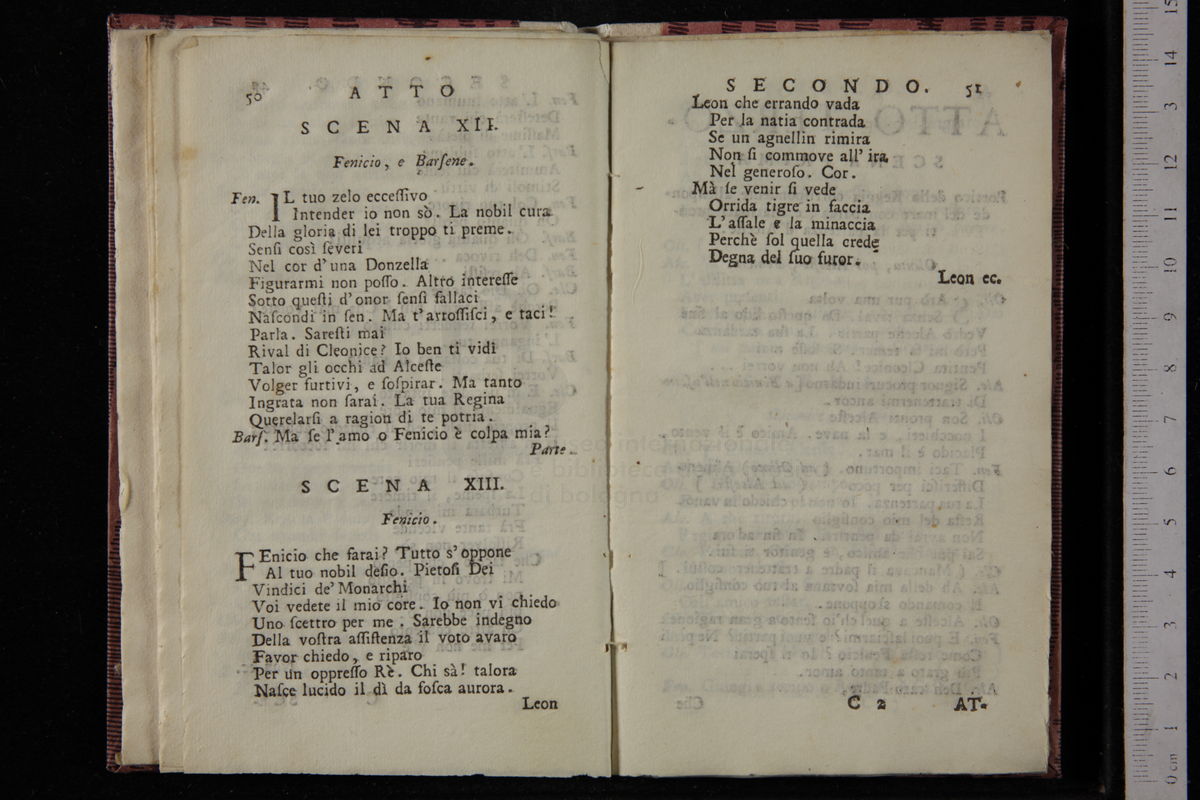 50 ATTO
SCENA XII.
Fenicio, e Barſene.
Fen. IL tuo zelo ecceſſivo
Intender io non sò. La nobil cura
Della gloria di lei troppo ti preme.
Senſi così ſeveri
Nel cor d'una Donzella
Figurarmi non poſſo. Altro intereſſe
Sotto queſti d'onor ſenſi fallaci
Naſcondi in ſen. Ma t'arroſſiſci, e taci!
Parla. Sareſti mai
Rival di Cleonice? Io ben ti vidi
Talor gli occhi ad Alceſte
Volger furtivi, e ſoſpirar. Ma tanto
Ingrata non ſarai. La tua Regina
Querelarſi a ragion di te potria.
Barſ. Ma ſe l'amo o Fenicio è colpa mia?
Parte.
SCENA XIII.
Fenicio.
FEnicio che farai? Tutto s'oppone
Al tuo nobil deſio. Pietoſi Dei
Vindici de' Monarchi
Voi vedete il mio core. Io non vi chiedo
Uno ſcettro per me. Sarebbe indegno
Della voſtra aſſiſtenza il voto avaro
Favor chiedo, e riparo
Per un oppreſſo Rè. Chi sà! talora
Naſce lucido il dì da foſca aurora.
Leon
SECONDO. 51
Leon che errando vada
Per la natia contrada
Se un agnellin rimira
Non ſi commove all' ira
Nel generoſo. Cor.
Mà ſe venir ſi vede
Orrida tigre in faccia
L'aſſale e la minaccia
Perchè ſol quella crede
Degna del ſuo furor.
Leon ec.
C 2 AT-
museo internazionale
biblioteca
di bologna
15
14
13
12
11
10
9
8
7
6
5
4
3
2
1
0 cm